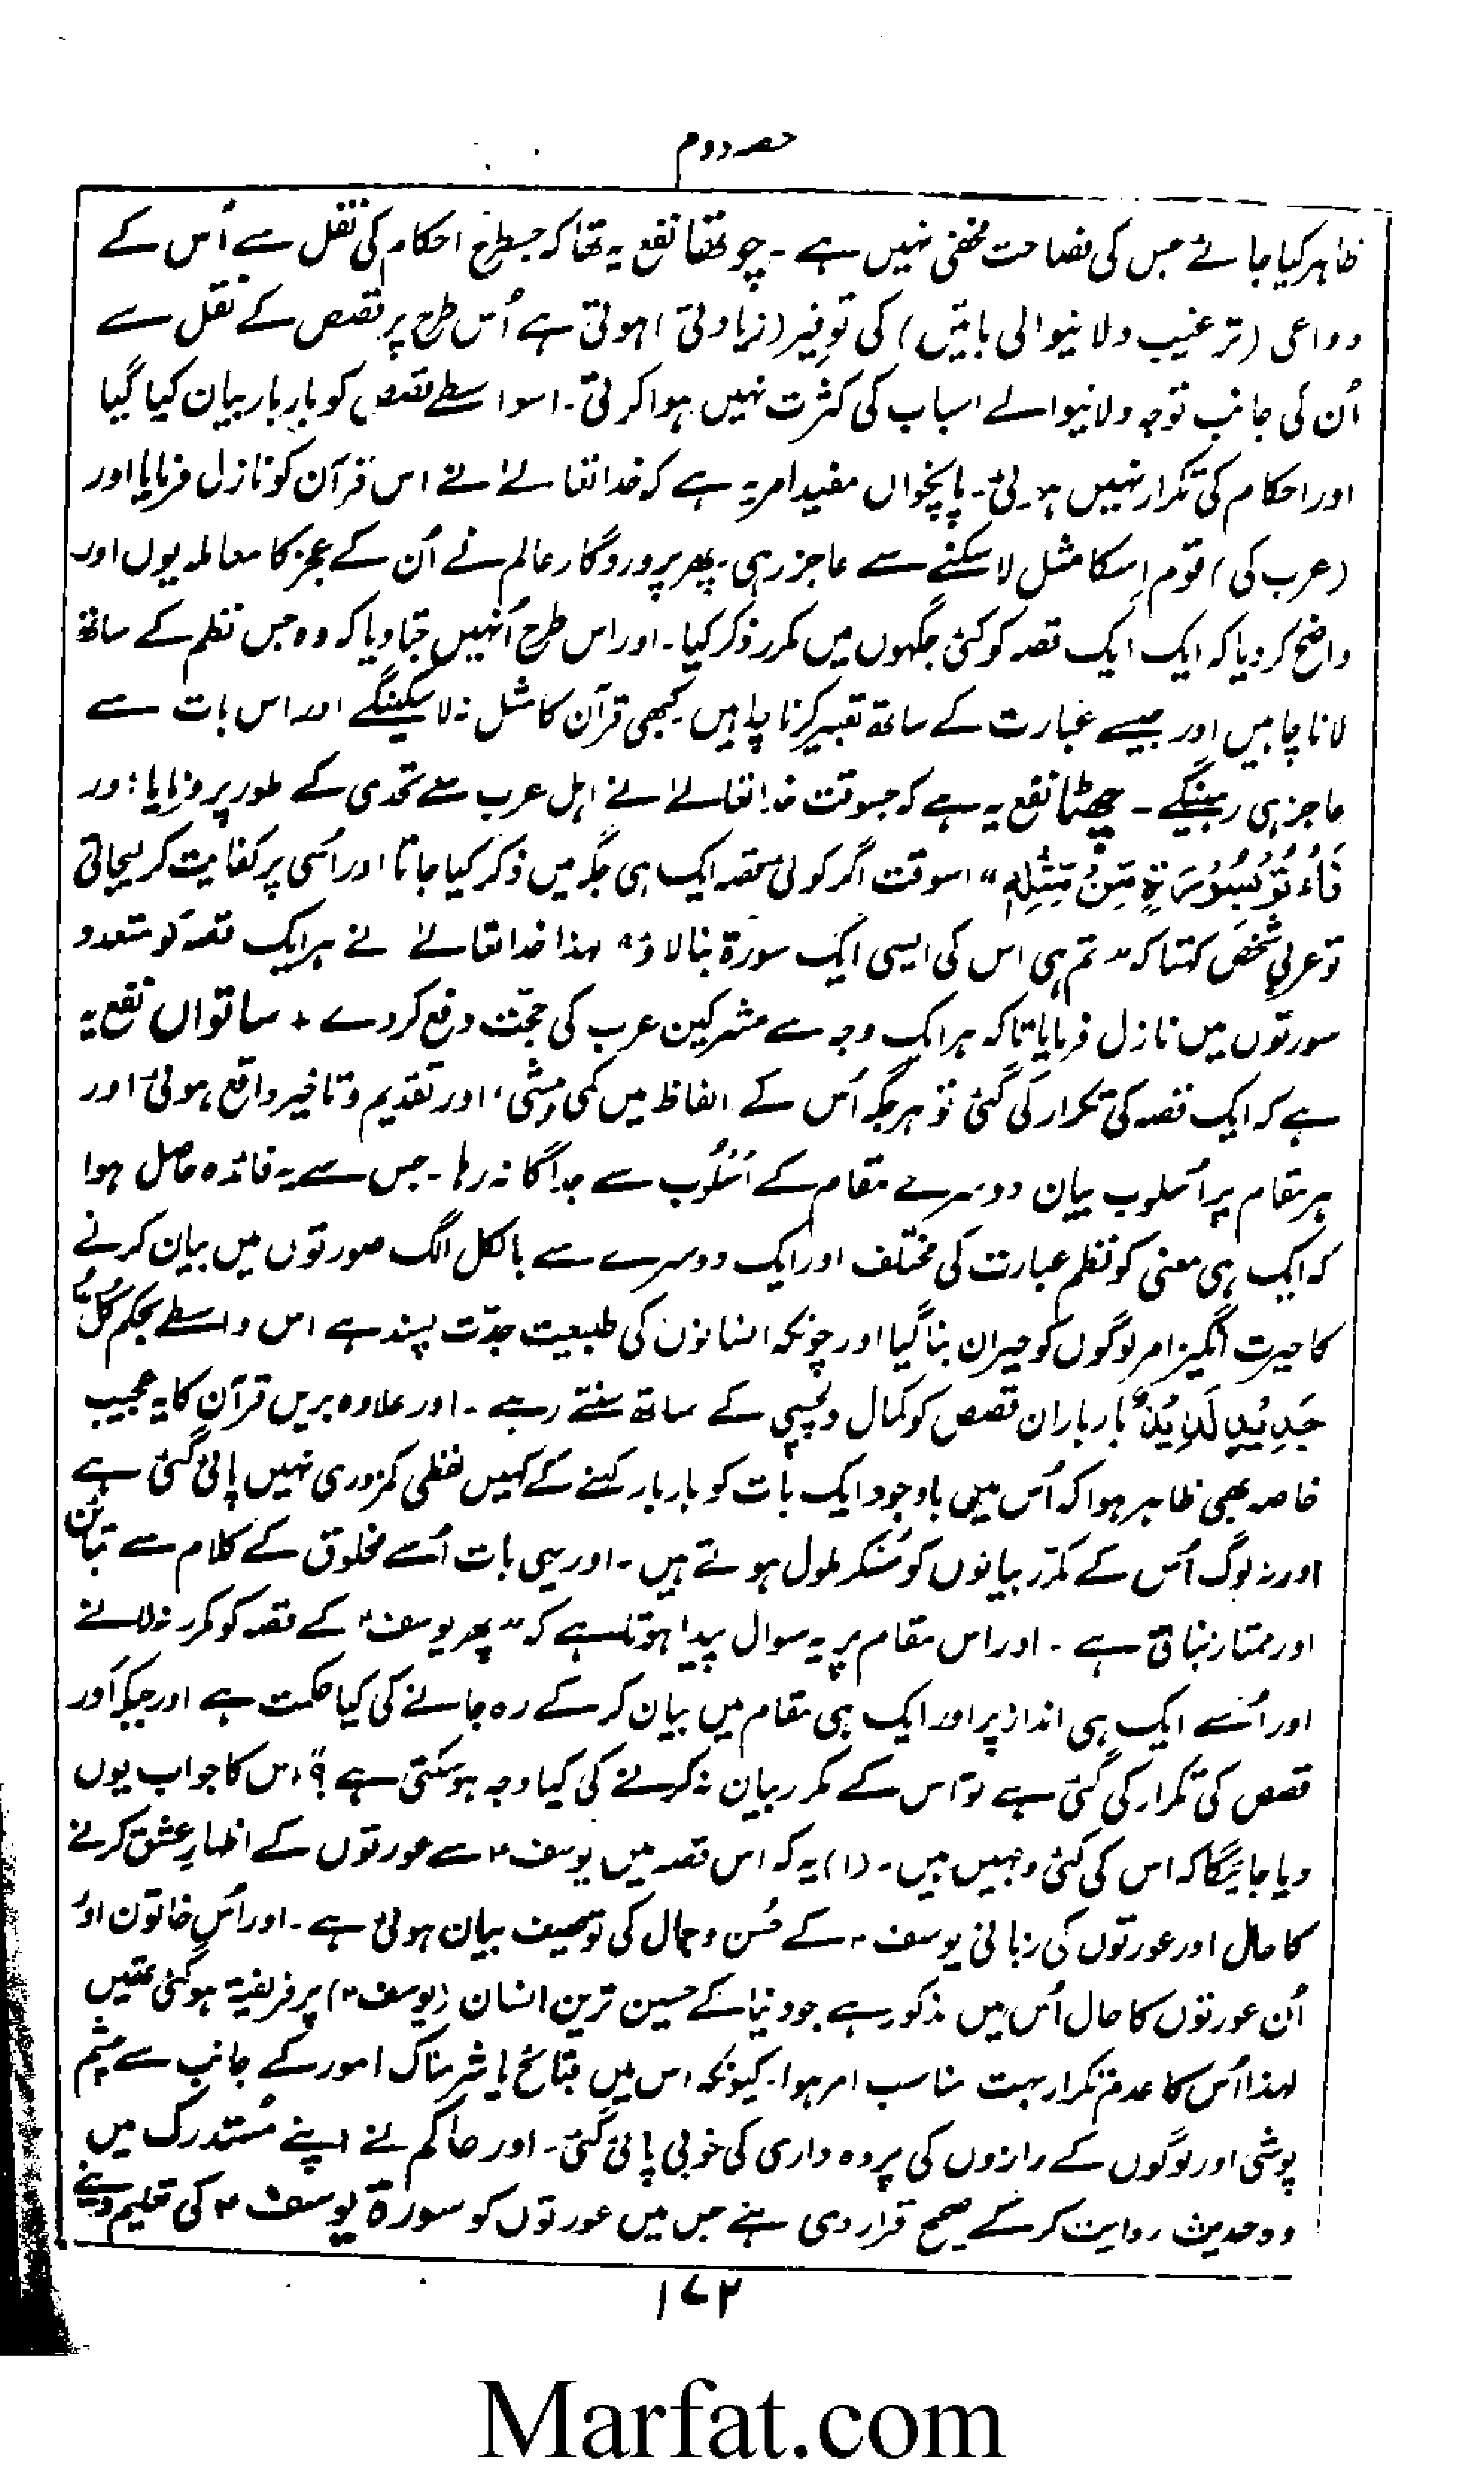 حصہ دوم
ظاہر کیا جائے جس کی فصاحت مخفی نہیں ہے ۔ چوتھا نفع یہ تھا کہ جسطرح احکام کی نقل سے اُس کے
دواعی (ترغیب دلانیوالی باتیں) کی توفیر (زیادتی) ہوتی ہے اُس طرح پر قصص کے نقل سے
اُن کی جانب توجہ دلانیوالے اسباب کی کثرت نہیں ہوا کرتی ۔ اسواسطے قصص کو بار بار بیان کیا گیا
اور احکام کی تکرار نہیں ہوئی ۔ پانچواں مفید امر یہ ہے کہ خدا تعالےٰ نے اس قرآن کو نازل فرمایا اور
(عرب کی) قوم اِسکا مثل لا سکنے سے عاجز رہی ۔ پھر پروردگار عالم نے اُن کے عجز کا معاملہ یوں اور
واضح کر دیا کہ ایک ایک قصہ کو کئی جگہوں میں مکرر ذکر کیا ۔ اور اس طرح اُنہیں جتا دیا کہ وہ جس نظم کے ساتھ
لانا چاہیں اور جیسے عبارت کے ساتھ تعبیر کرنا چاہیں ۔ کبھی قرآن کا مثل نہ لا سکینگے اور اس بات سے
عاجز ہی رہینگے ۔ چھٹا نفع یہ ہے کہ جسوقت خدا تعالےٰ نے اہل عرب سے تحدی کے طور پر فرمایا : اور
فَأْتُوْا بِسُوْرَةٍ مِّنْ مِّثْلِهٖ " اسوقت اگر کوئی قصہ ایک ہی جگہ میں ذکر کیا جاتا اور اُسی پر کفایت کر لیجاتی
تو عربی شخص کہتا کہ " تم ہی اس کی ایسی ایک سورۃ بنا لاؤ " لہذا خدا تعالےٰ نے ہر ایک قصہ کو متعدد
سورتوں میں نازل فرمایا تاکہ ہر ایک وجہ سے مشرکین عرب کی حجّت دفع کر دے + ساتواں نفع یہ
ہے کہ ایک قصہ کی تکرار کی گئی تو ہر جگہ اُس کے الفاظ میں کمی و بیشی ، اور تقدیم و تاخیر واقع ہوئی اور
ہر مقام پر اُسلوب بیان دوسرے مقام کے اُسْلُوب سے جداگانہ رہا ۔ جس سے یہ فائدہ حاصل ہوا
کہ ایک ہی معنی کو نظم عبارت کی مختلف اور ایک دوسرے سے بالکل الگ صورتوں میں بیان کرنے
کا حیرت انگیز امر لوگوں کو حیران بنا گیا اور چونکہ انسانوں کی طبیعت جدّت پسند ہے اس واسطے بحکم كُلُّ
جَدِيْدٍ لَذِيْذٌ " بار بار ان قصص کو کمال دلچسپی کے ساتھ سنتے رہے ۔ اور علاوہ بریں قرآن کا یہ عجیب
خاصہ بھی ظاہر ہوا کہ اُس میں باوجود ایک بات کو بار بار کہنے کے کہیں لفظی کمزوری نہیں پائی گئی ہے
اور نہ لوگ اُس کے مکرّر بیانوں کو سُنکر ملول ہوتے ہیں ۔ اور یہی بات اُسے مخلوق کے کلام سے تبائن
اور ممتاز بناتی ہے ۔ اور اس مقام پر یہ سوال پیدا ہوتا ہے کہ " پھر یوسف ؑ کے قصہ کو مکرر نہ لانے
اور اُسے ایک ہی انداز پر اور ایک ہی مقام میں بیان کر کے رہ جانے کی کیا حکمت ہے اور جبکہ اَور
قصص کی تکرار کی گئی ہے تو اس کے مکرر بیان نہ کرنے کی کیا وجہ ہو سکتی ہے ؟ " اس کا جواب یوں
دیا جائیگا کہ اس کی کئی وجہیں ہیں ۔ (۱) یہ کہ اس قصہ میں یوسف ؑ سے عورتوں کے اظہارِ عشق کرنے
کا حال اور عورتوں کی زبانی یوسف ؑ کے حُسن و جمال کی توصیف بیان ہوئی ہے ۔ اور اُس خاتون اور
اُن عورتوں کا حال اُس میں مذکور ہے جو دنیا کے حسین ترین انسان (یوسف ؑ) پر فریفتہ ہو گئی تھیں
لہذا اُس کا عدم تکرار بہت مناسب امر ہوا ۔ کیونکہ اس میں قبائح یا شرمناک امور کے جانب سے چشم
پوشی اور لوگوں کے رازوں کی پردہ داری کی خوبی پائی گئی ۔ اور حاکم نے اپنے مُستدرک میں
وہ حدیث روایت کر کے صحیح قرار دی ہے جس میں عورتوں کو سورۃ یوسف ؑ کی تعلیم دینے
۱۷۲
Marfat.com